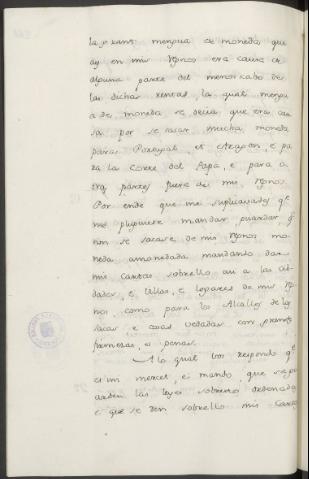 la grant mengua de moneda que
ay en mis Rgnos era causa de
alguna parte del menoscabo de
las dichas rentas la qual mengu
a de moneda se decia que era cau
sa por se sacar mucha moneda
para Portugal, et Aragon, e pa
ra la Corte del Papa, e para o
tras partes fuera de mis Rgnos.
Por ende que me suplicavades qe
me plugiere mandar guardar q
non se sacase de mis Rgnos mo
neda amonedada mandando dar
mis Cartas sobrello asi a las cib
dades, e Villas, e logares de mis Rg
nos como para los Alcalles de las
sacas e cosas vedadas con grandes
firmesas, e penas.
A lo qual vos respondo qe
es mi mercet, e mando que se gu
arden las leyes sobresto ordenadas
e que se den sobrello mis Cartas